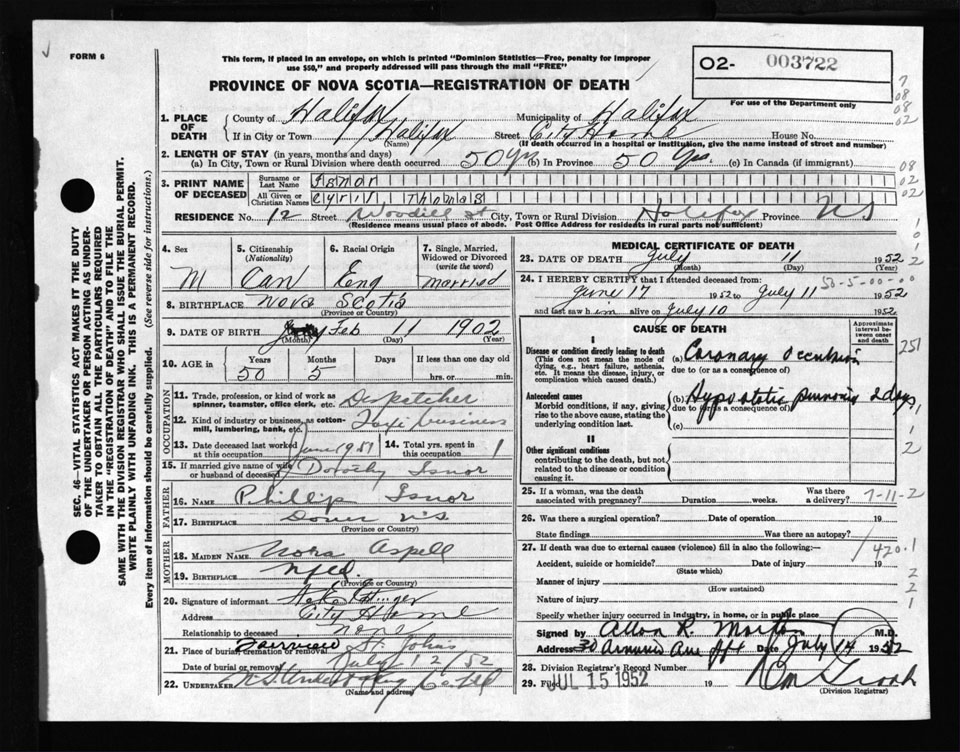 FORM 6
This form, if placed in an envelope, on which is printed "Dominion Statistics—Free, penalty for improper
use $50," and properly addressed will pass through the mail "FREE"
PROVINCE OF NOVA SCOTIA—REGISTRATION OF DEATH
O2- 003722
For use of the Department only
SEC. 46—VITAL STATISTICS ACT MAKES IT THE DUTY
OF THE UNDERTAKER OR PERSON ACTING AS UNDER-
TAKER TO OBTAIN ALL THE PARTICULARS REQUIRED
IN THE "REGISTRATION OF DEATH" AND TO FILE THE
SAME WITH THE DIVISION REGISTRAR WHO SHALL ISSUE THE BURIAL PERMIT.
WRITE PLAINLY WITH UNFADING INK. THIS IS A PERMANENT RECORD.
Every item of information should be carefully supplied. (See reverse side for instructions.)
1. PLACE OF DEATH
County of Halifax Municipality of Halifax
If in City or Town Halifax Street City Home House No.
(Name) (If death occurred in a hospital or institution, give the name instead of street and number)
2. LENGTH OF STAY (in years, months and days)
(a) In City, Town or Rural Division where death occurred 50 yrs (b) In Province 50 yrs. (c) In Canada (if immigrant)
3. PRINT NAME OF DECEASED
Surname or Last Name Isnor
All Given or Christian Names Cyril Thomas
RESIDENCE No. 12 Street Woodill St City, Town or Rural Division Halifax Province NS
(Residence means usual place of abode. Post Office Address for residents in rural parts not sufficient)
4. Sex M
5. Citizenship (Nationality) Can
6. Racial Origin Eng
7. Single, Married, Widowed or Divorced (write the word) married
8. BIRTHPLACE Nova Scotia
(Province or Country)
9. DATE OF BIRTH Feb 11 1902
(Month) (Day) (Year)
10. AGE in Years 50 Months 5 Days If less than one day old hrs. or min.
OCCUPATION
11. Trade, profession, or kind of work as spinner, teamster, office clerk, etc. Despatcher
12. Kind of industry or business, as cotten-mill, lumbering, bank, etc. Taxi business
13. Date deceased last worked at this occupation June 1951
14. Total yrs. spent in this occupation 1
15. If married give name of wife or husband of deceased Dorothy Isnor
FATHER
16. NAME Phillip Isnor
17. BIRTHPLACE Dover N.S.
(Province or Country)
MOTHER
18. MAIDEN NAME Nora Aspell
19. BIRTHPLACE Nfld.
(Province or Country)
20. Signature of informant
Address City Home
Relationship to deceased none
21. Place of burial, cremation or removal Fairview St. Johns
Date of burial or removal July 12/52
22. UNDERTAKER
(Name and address)
MEDICAL CERTIFICATE OF DEATH
23. DATE OF DEATH July 11 1952
(Month) (Day) (Year)
24. I HEREBY CERTIFY that I attended deceased from:
June 17 1952 to July 11 1952
and last saw him alive on July 10 1952
50-5-00-00
CAUSE OF DEATH
Approximate interval between onset and death
I
Disease or condition directly leading to death (a) Coronary Occlusion
(This does not mean the mode of dying, e.g., heart failure, asthenia, etc. It means the disease, injury, or complication which caused death.)
due to (or as a consequence of)
Antecedent causes (b) Hypostatic pneumonia 2 days
Morbid conditions, if any, giving rise to the above cause, stating the underlying condition last.
due to (or as a consequence of)
(c)
II
Other significant conditions
contributing to the death, but not related to the disease or condition causing it.
25. If a woman, was the death associated with pregnancy? Duration weeks. Was there a delivery?
7-11-2
26. Was there a surgical operation? Date of operation 19
State findings Was there an autopsy?
27. If death was due to external causes (violence) fill in also the following:—
420.1
Accident, suicide or homicide? Date of injury 19
(State which)
Manner of injury
(How sustained)
Nature of injury
Specify whether injury occurred in industry, in home, or in public place
Signed by Allan R. Morton M.D.
Address Hfx Date July 14 1952
28. Division Registrar's Record Number
29. Filed JUL 15 1952
(Division Registrar)
7
08
08
02
08
02
02
1
0
1
2
251
1
1
2
2
2
1